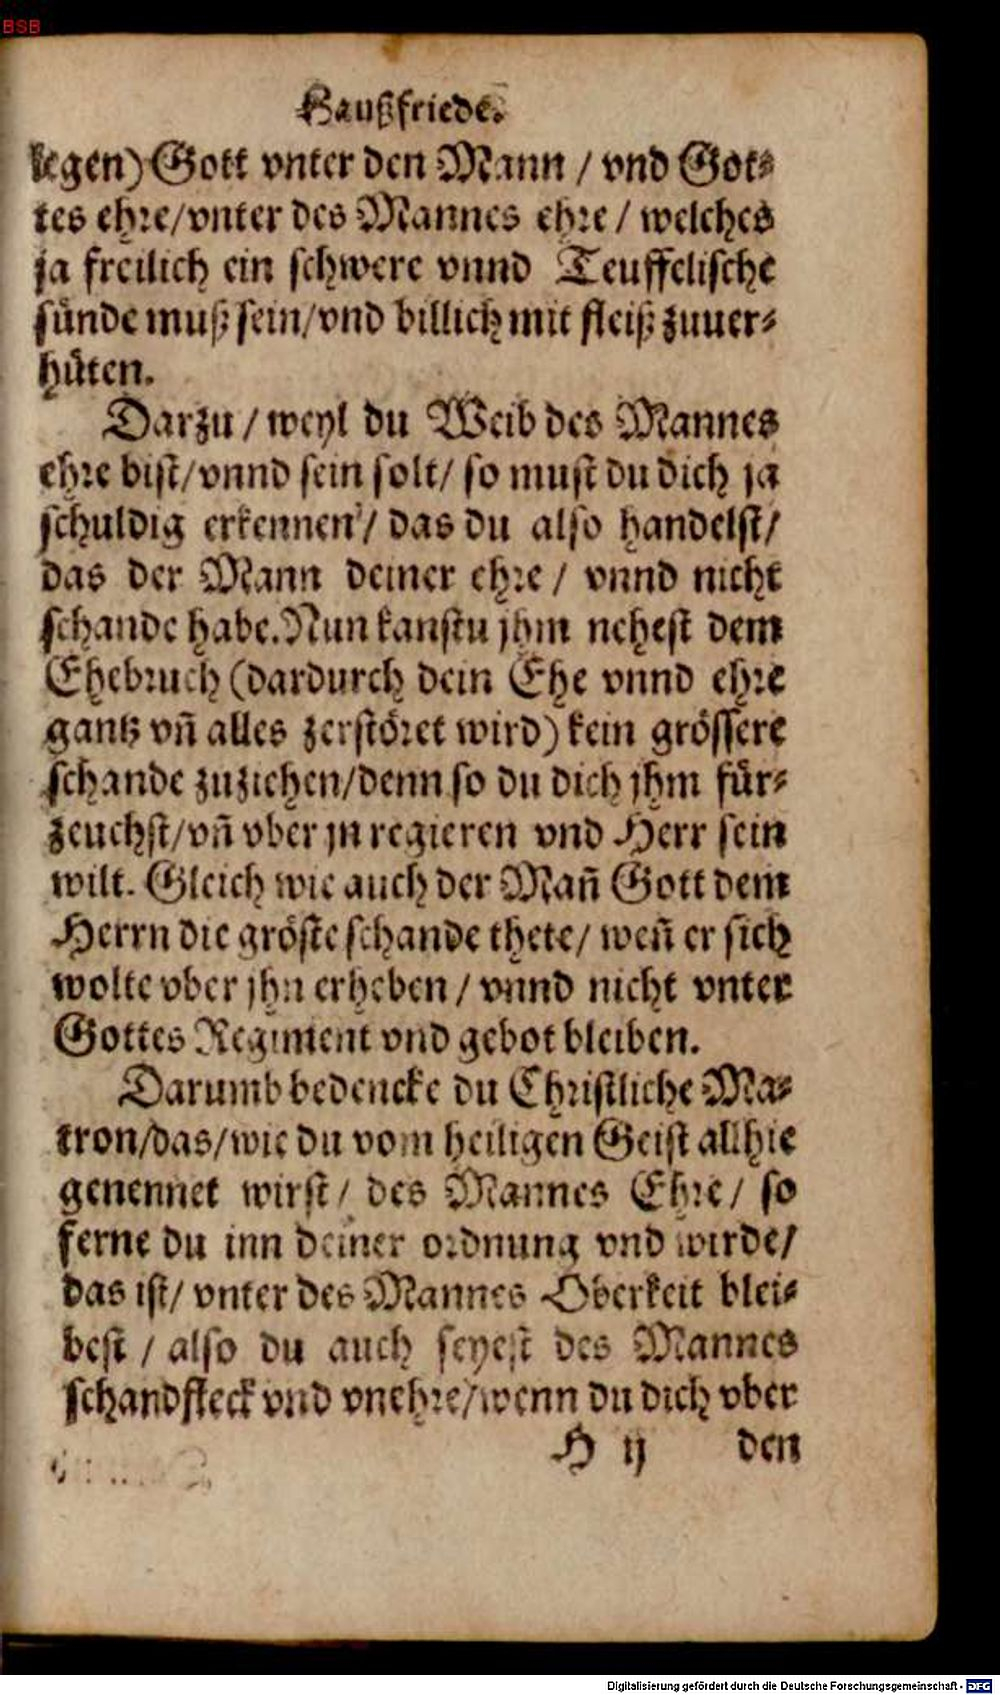 BSB
Haußfriede.
legen) Gott vnter den Mann / vnd Got⸗
tes ehre/vnter des Mannes ehre / welches
ja freilich ein schwere vnnd Teuffelische
sünde muß sein/vnd billich mit fleiß zuuer⸗
hüten.
Darzu / weyl du Weib des Mannes
ehre bist/vnnd sein solt/ so must du dich ja
schuldig erkennen / das du also handelst/
das der Mann deiner ehre / vnnd nicht
schande habe. Nun kanstu jhm nehest dem
Ehebruch (dardurch dein Ehe vnnd ehre
gantz vñ alles zerstöret wird) kein grössere
schande zuziehen/denn so du dich jhm für⸗
zeuchst/vñ vber jn regieren vnd Herr sein
wilt. Gleich wie auch der Mañ Gott dem
Herrn die gröste schande thete/ weñ er sich
wolte vber jhn erheben / vnnd nicht vnter
Gottes Regiment vnd gebot bleiben.
Darumb bedencke du Christliche Ma⸗
tron/das/wie du vom heiligen Geist allhie
genennet wirst / des Mannes Ehre / so
ferne du inn deiner ordnung vnd wirde/
das ist/ vnter des Mannes Oberkeit blei⸗
best / also du auch seyest des Mannes
schandfleck vnd vnehre/wenn du dich vber
H ij den
Digitalisierung gefördert durch die Deutsche Forschungsgemeinschaft - DFG